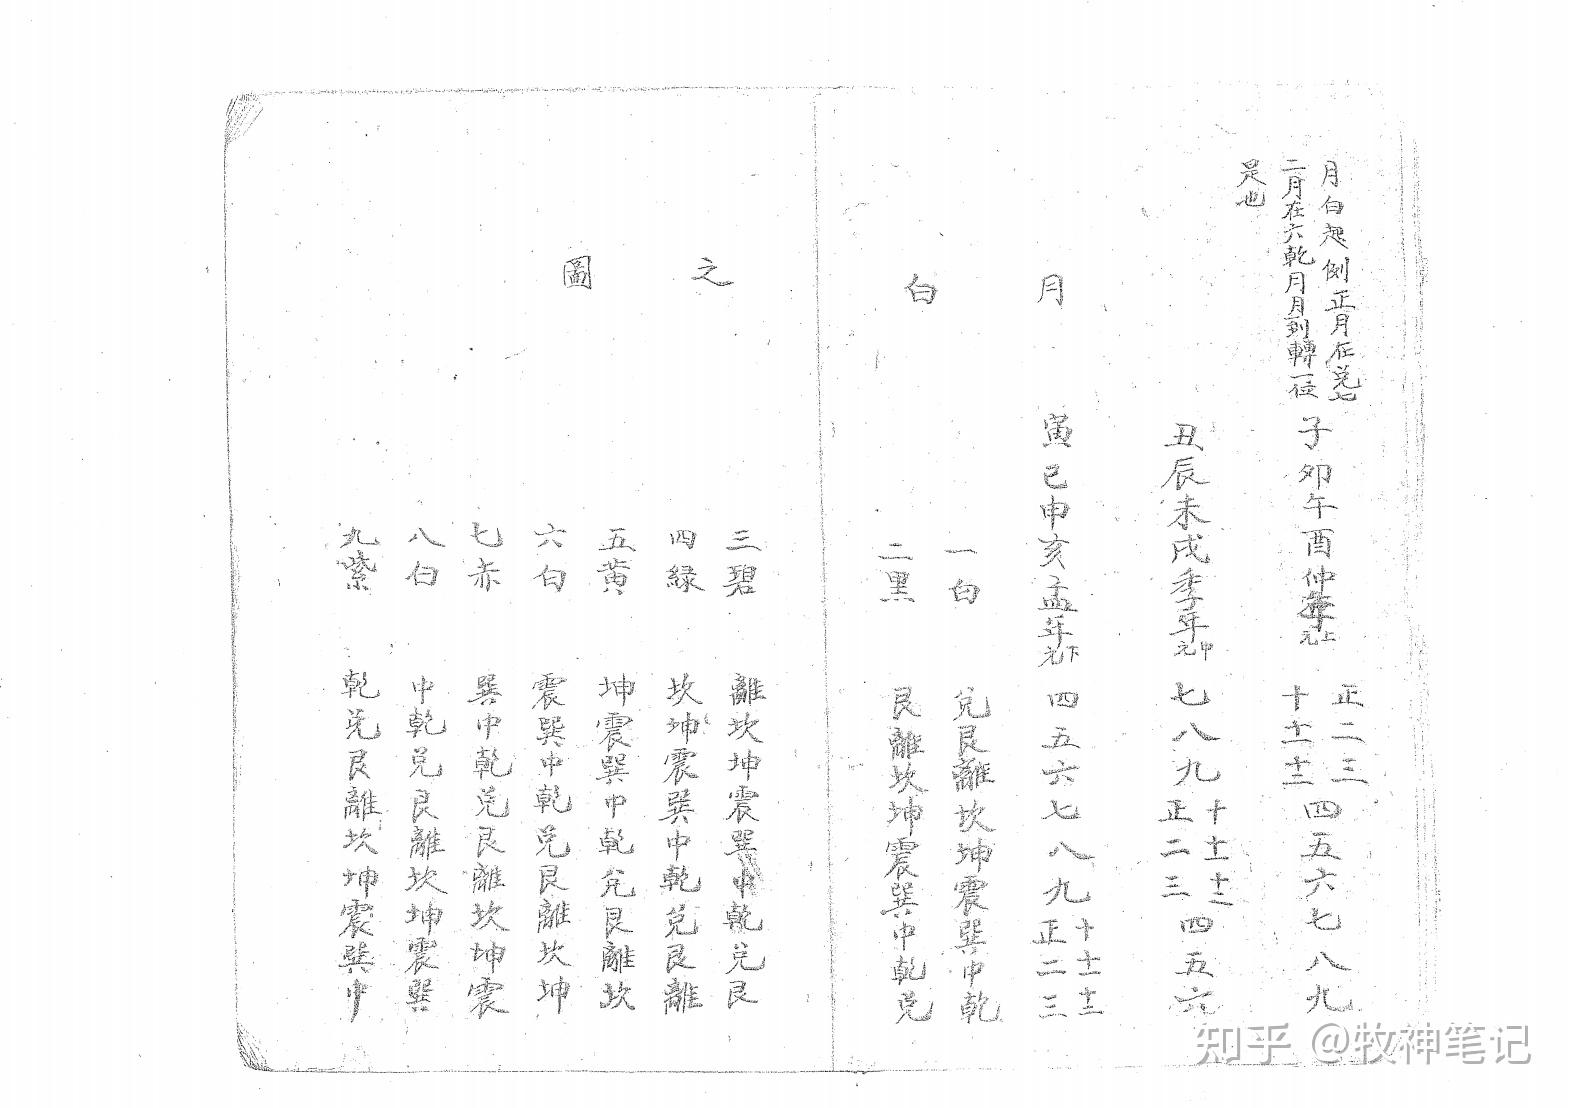 月白起例正月在兌七
二月在六乾月月到轉一位
是也
月白之圖
子卯午酉仲年上元 正二三四五六七八九
十十一十二
丑辰未戌季年中元 七八九正二三四五六
十十一十二
寅巳申亥孟年下元 四五六七八九正二三
十十一十二
一白 兌艮離坎坤震巽中乾
二黑 艮離坎坤震巽中乾兌
三碧 離坎坤震巽中乾兌艮
四緑 坎坤震巽中乾兌艮離
五黄 坤震巽中乾兌艮離坎
六白 震巽中乾兌艮離坎坤
七赤 巽中乾兌艮離坎坤震
八白 中乾兌艮離坎坤震巽
九紫 乾兌艮離坎坤震巽中
知乎 @牧神笔记